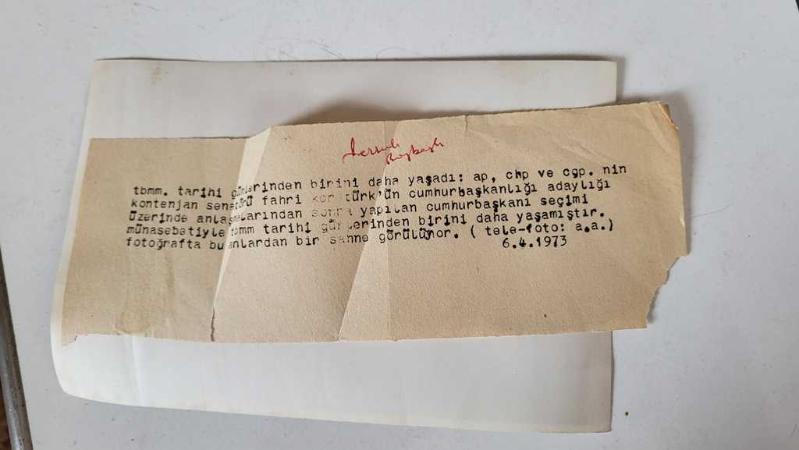 tbmm. tarihi günlerinden birini daha yaşadı: ap, chp ve cgp. nin
kontenjan senatörü fahri korutürk'ün cumhurbaşkanlığı adaylığı
üzerinde anlaşmalarından sonra yapılan cumhurbaşkanı seçimi
münasebetiyle tbmm tarihi günlerinden birini daha yaşamıştır.
fotoğrafta bu anlardan bir sahne görülüyor. ( tele-foto: a.a.)
6.4.1973